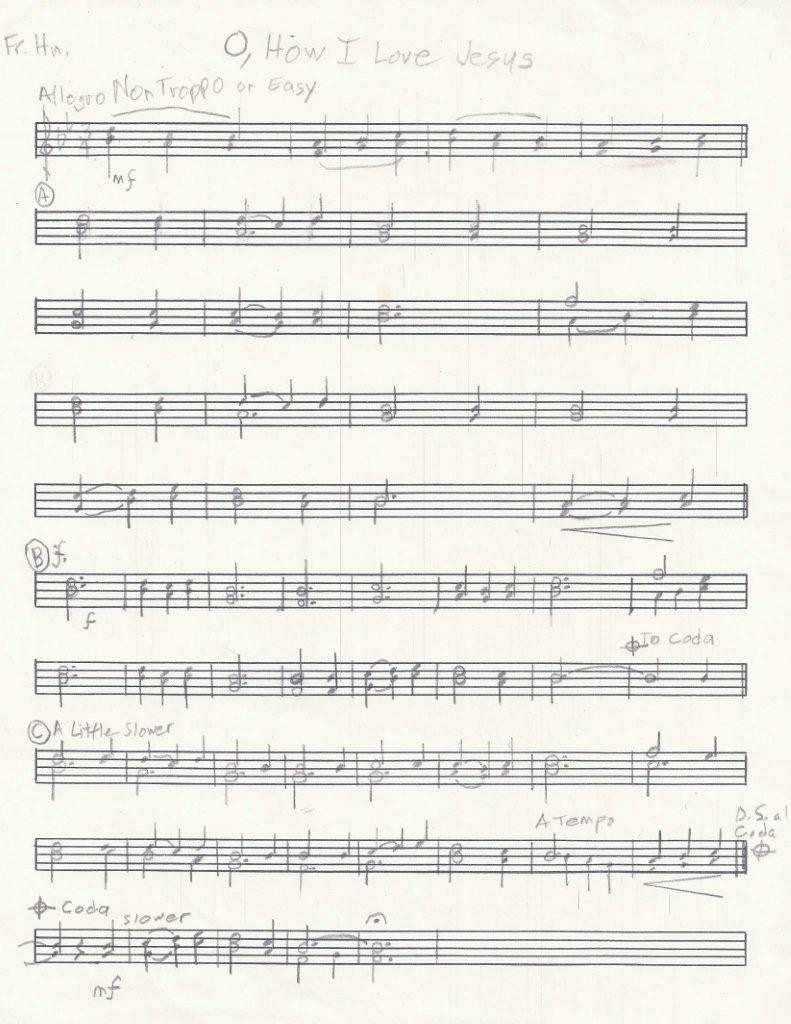 Fr. Hn.
O, How I Love Jesus
Allegro Non Troppo or Easy
mf
A
B
B f
f
To Coda
C A Little Slower
A Tempo
D.S. al
Coda
Coda
slower
mf